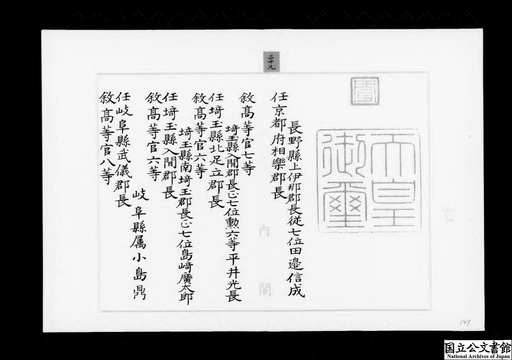 二十九
長野縣上伊那郡長從七位田邉信成
任京都府相樂郡長
敘高等官七等
埼玉縣入間郡長正七位勲六等平井光長
任埼玉縣北足立郡長
敘高等官六等
埼玉縣南埼玉郡長正七位島﨑廣太郎
任埼玉縣入間郡長
敘高等官六等
岐阜縣属小島鼎
任岐阜縣武儀郡長
敘高等官八等
天皇御璽
内閣
国立公文書館
National Archives of Japan